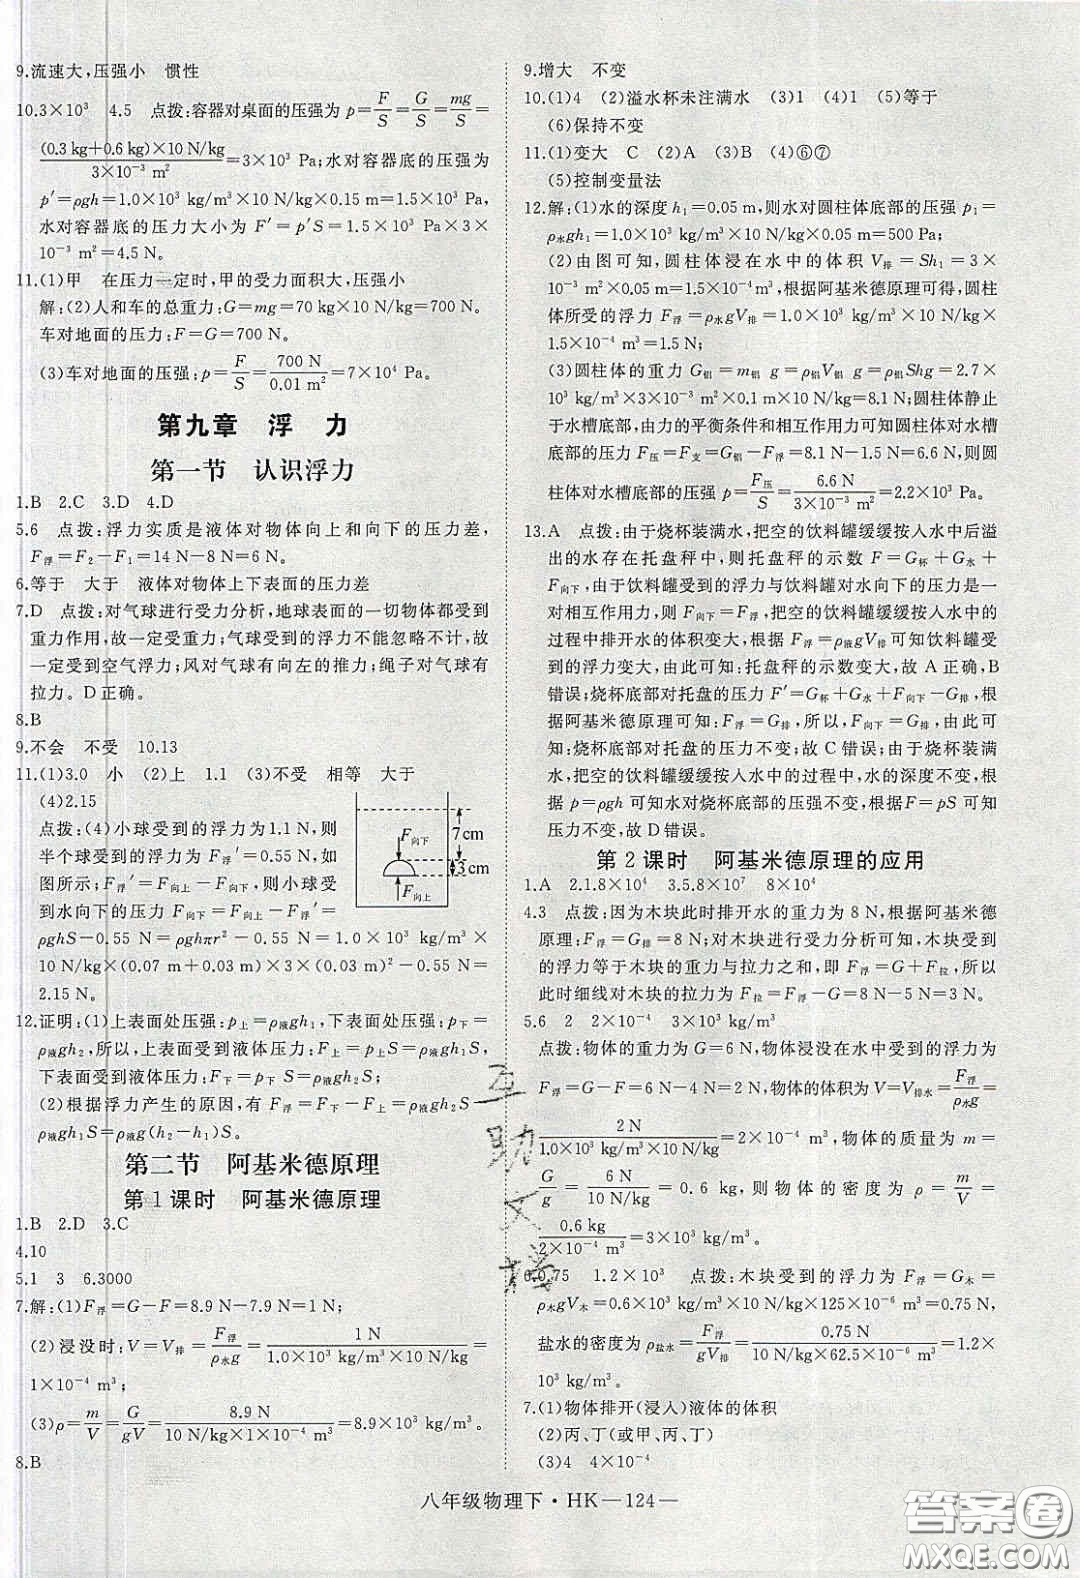 9.流速大,压强小　惯性
10.3×10³　4.5　点拨:容器对桌面的压强为 p=F/S=G/S=mg/S=
(0.3 kg+0.6 kg)×10 N/kg / 3×10⁻³ m² =3×10³ Pa;水对容器底的压强为
p′=ρgh=1.0×10³ kg/m³×10 N/kg×0.15 m=1.5×10³ Pa,
水对容器底的压力大小为 F′=p′S=1.5×10³ Pa×3×
10⁻³ m²=4.5 N。
11.(1)甲　在压力一定时,甲的受力面积大,压强小
解:(2)人和车的总重力:G=mg=70 kg×10 N/kg=700 N。
车对地面的压力:F=G=700 N。
(3)车对地面的压强:p=F/S=700 N/0.01 m²=7×10⁴ Pa。
第九章　浮　力
第一节　认识浮力
1.B　2.C　3.D　4.D
5.6　点拨:浮力实质是液体对物体向上和向下的压力差,
F浮=F₂-F₁=14 N-8 N=6 N。
6.等于　大于　液体对物体上下表面的压力差
7.D　点拨:对气球进行受力分析,地球表面的一切物体都受到
重力作用,故一定受重力;气球受到的浮力不能忽略不计,故
一定受到空气浮力;风对气球有向左的推力;绳子对气球有
拉力。D正确。
8.B
9.不会　不受　10.13
11.(1)3.0　小　(2)上　1.1　(3)不受　相等　大于
(4)2.15
点拨:(4)小球受到的浮力为1.1 N,则
半个球受到的浮力为 F浮′=0.55 N,如
图所示;F浮′=F向上-F向下,则圆面受
到水向下的压力 F向下=F向上-F浮′=
ρghS-0.55 N=ρghπr²-0.55 N=1.0×10³ kg/m³×
10 N/kg×(0.07 m+0.03 m)×3×(0.03 m)²-0.55 N=
2.15 N。
F向下
7 cm
3 cm
F向上
12.证明:(1)上表面处压强:p上=ρ液gh₁,下表面处压强:p下=
ρ液gh₂,所以,上表面受到液体压力:F上=p上S=ρ液gh₁S,
下表面受到液体压力:F下=p下S=ρ液gh₂S;
(2)根据浮力产生的原因,有 F浮=F下-F上=ρ液gh₂S-
ρ液gh₁S=ρ液g(h₂-h₁)S。
第二节　阿基米德原理
第1课时　阿基米德原理
1.B　2.D　3.C
4.10
5.1　3　6.3000
7.解:(1)F浮=G-F=8.9 N-7.9 N=1 N;
(2)浸没时:V=V排=F浮/ρ水g=1 N/1.0×10³ kg/m³×10 N/kg=
1×10⁻⁴ m³;
(3)ρ=m/V=G/gV=8.9 N/10 N/kg×1×10⁻⁴ m³=8.9×10³ kg/m³。
8.B
9.增大　不变
10.(1)4　(2)溢水杯未注满水　(3)1　(4)1　(5)等于
(6)保持不变
11.(1)变大　C　(2)A　(3)B　(4)⑥⑦
(5)控制变量法
12.解:(1)水的深度 h₁=0.05 m,则水对圆柱体底部的压强 p₁=
ρ水gh₁=1.0×10³ kg/m³×10 N/kg×0.05 m=500 Pa;
(2)由图可知,圆柱体浸在水中的体积 V排=Sh₁=3×
10⁻³ m²×0.05 m=1.5×10⁻⁴ m³,根据阿基米德原理可得,圆柱
体所受的浮力 F浮=ρ水gV排=1.0×10³ kg/m³×10 N/kg×
1.5×10⁻⁴ m³=1.5 N;
(3)圆柱体的重力 G铝=m铝 g=ρ铝V铝 g=ρ铝Shg=2.7×
10³ kg/m³×3×10⁻³ m²×0.1 m×10 N/kg=8.1 N;圆柱体静止
于水槽底部,由力的平衡条件和相互作用力可知圆柱体对水槽
底部的压力 F压=F支=G铝-F浮=8.1 N-1.5 N=6.6 N,则圆
柱体对水槽底部的压强 p=F压/S=6.6 N/3×10⁻³ m²=2.2×10³ Pa。
13.A　点拨:由于烧杯装满水,把空的饮料罐缓缓按入水中后溢
出的水存在托盘秤中,则托盘秤的示数 F=G杯+G水+
F向下,由于饮料罐受到的浮力与饮料罐对水向下的压力是一
对相互作用力,则 F向下=F浮,把空的饮料罐缓缓按入水中的
过程中排开水的体积变大,根据 F浮=ρ液gV排可知饮料罐受
到的浮力变大,由此可知:托盘秤的示数变大,故 A 正确,B
错误;烧杯底部对托盘的压力 F′=G杯+G水+F向下-G排,根
据阿基米德原理可知:F浮=G排,所以,F向下=G排,则 F′=
G杯+G水,即烧杯底部对托盘的压力不变;故 C 错误;由于烧杯装满
水,把空的饮料罐缓缓按入水中的过程中,水的深度不变,根
据 p=ρgh 可知水对烧杯底部的压强不变,根据 F=pS 可知
压力不变,故 D 错误。
第2课时　阿基米德原理的应用
1.A　2.1.8×10⁴　3.5.8×10⁷　8×10⁴
4.3　点拨:因为木块此时排开水的重力为 8 N,根据阿基米德
原理:F浮=G排=8 N;对木块进行受力分析可知,木块受到
的浮力等于木块的重力与拉力之和,即 F浮=G+F拉,所以
此时细线对木块的拉力为 F拉=F浮-G=8 N-5 N=3 N。
5.6　2　2×10⁻⁴　3×10³ kg/m³
点拨:物体的重力为 G=6 N,物体浸没在水中受到的浮力为
F浮=G-F=6 N-4 N=2 N,物体的体积为 V=V排水=F浮/ρ水g=
2 N/1.0×10³ kg/m³×10 N/kg=2×10⁻⁴ m³,物体的质量为 m=
G/g=6 N/10 N/kg=0.6 kg,则物体的密度为 ρ=m/V=
0.6 kg/2×10⁻⁴ m³=3×10³ kg/m³。
6.0.75　1.2×10³　点拨:木块受到的浮力为 F浮=G木=
ρ木gV木=0.6×10³ kg/m³×10 N/kg×125×10⁻⁶ m³=0.75 N,
盐水的密度为 ρ盐水=F浮/gV排=0.75 N/10 N/kg×62.5×10⁻⁶ m³=1.2×
10³ kg/m³。
7.(1)物体排开(浸入)液体的体积
(2)丙、丁(或甲、丙、丁)
(3)4　4×10⁻⁴
互
助
文
档
八年级物理下·HK—124—
答案圈
MXQE.COM